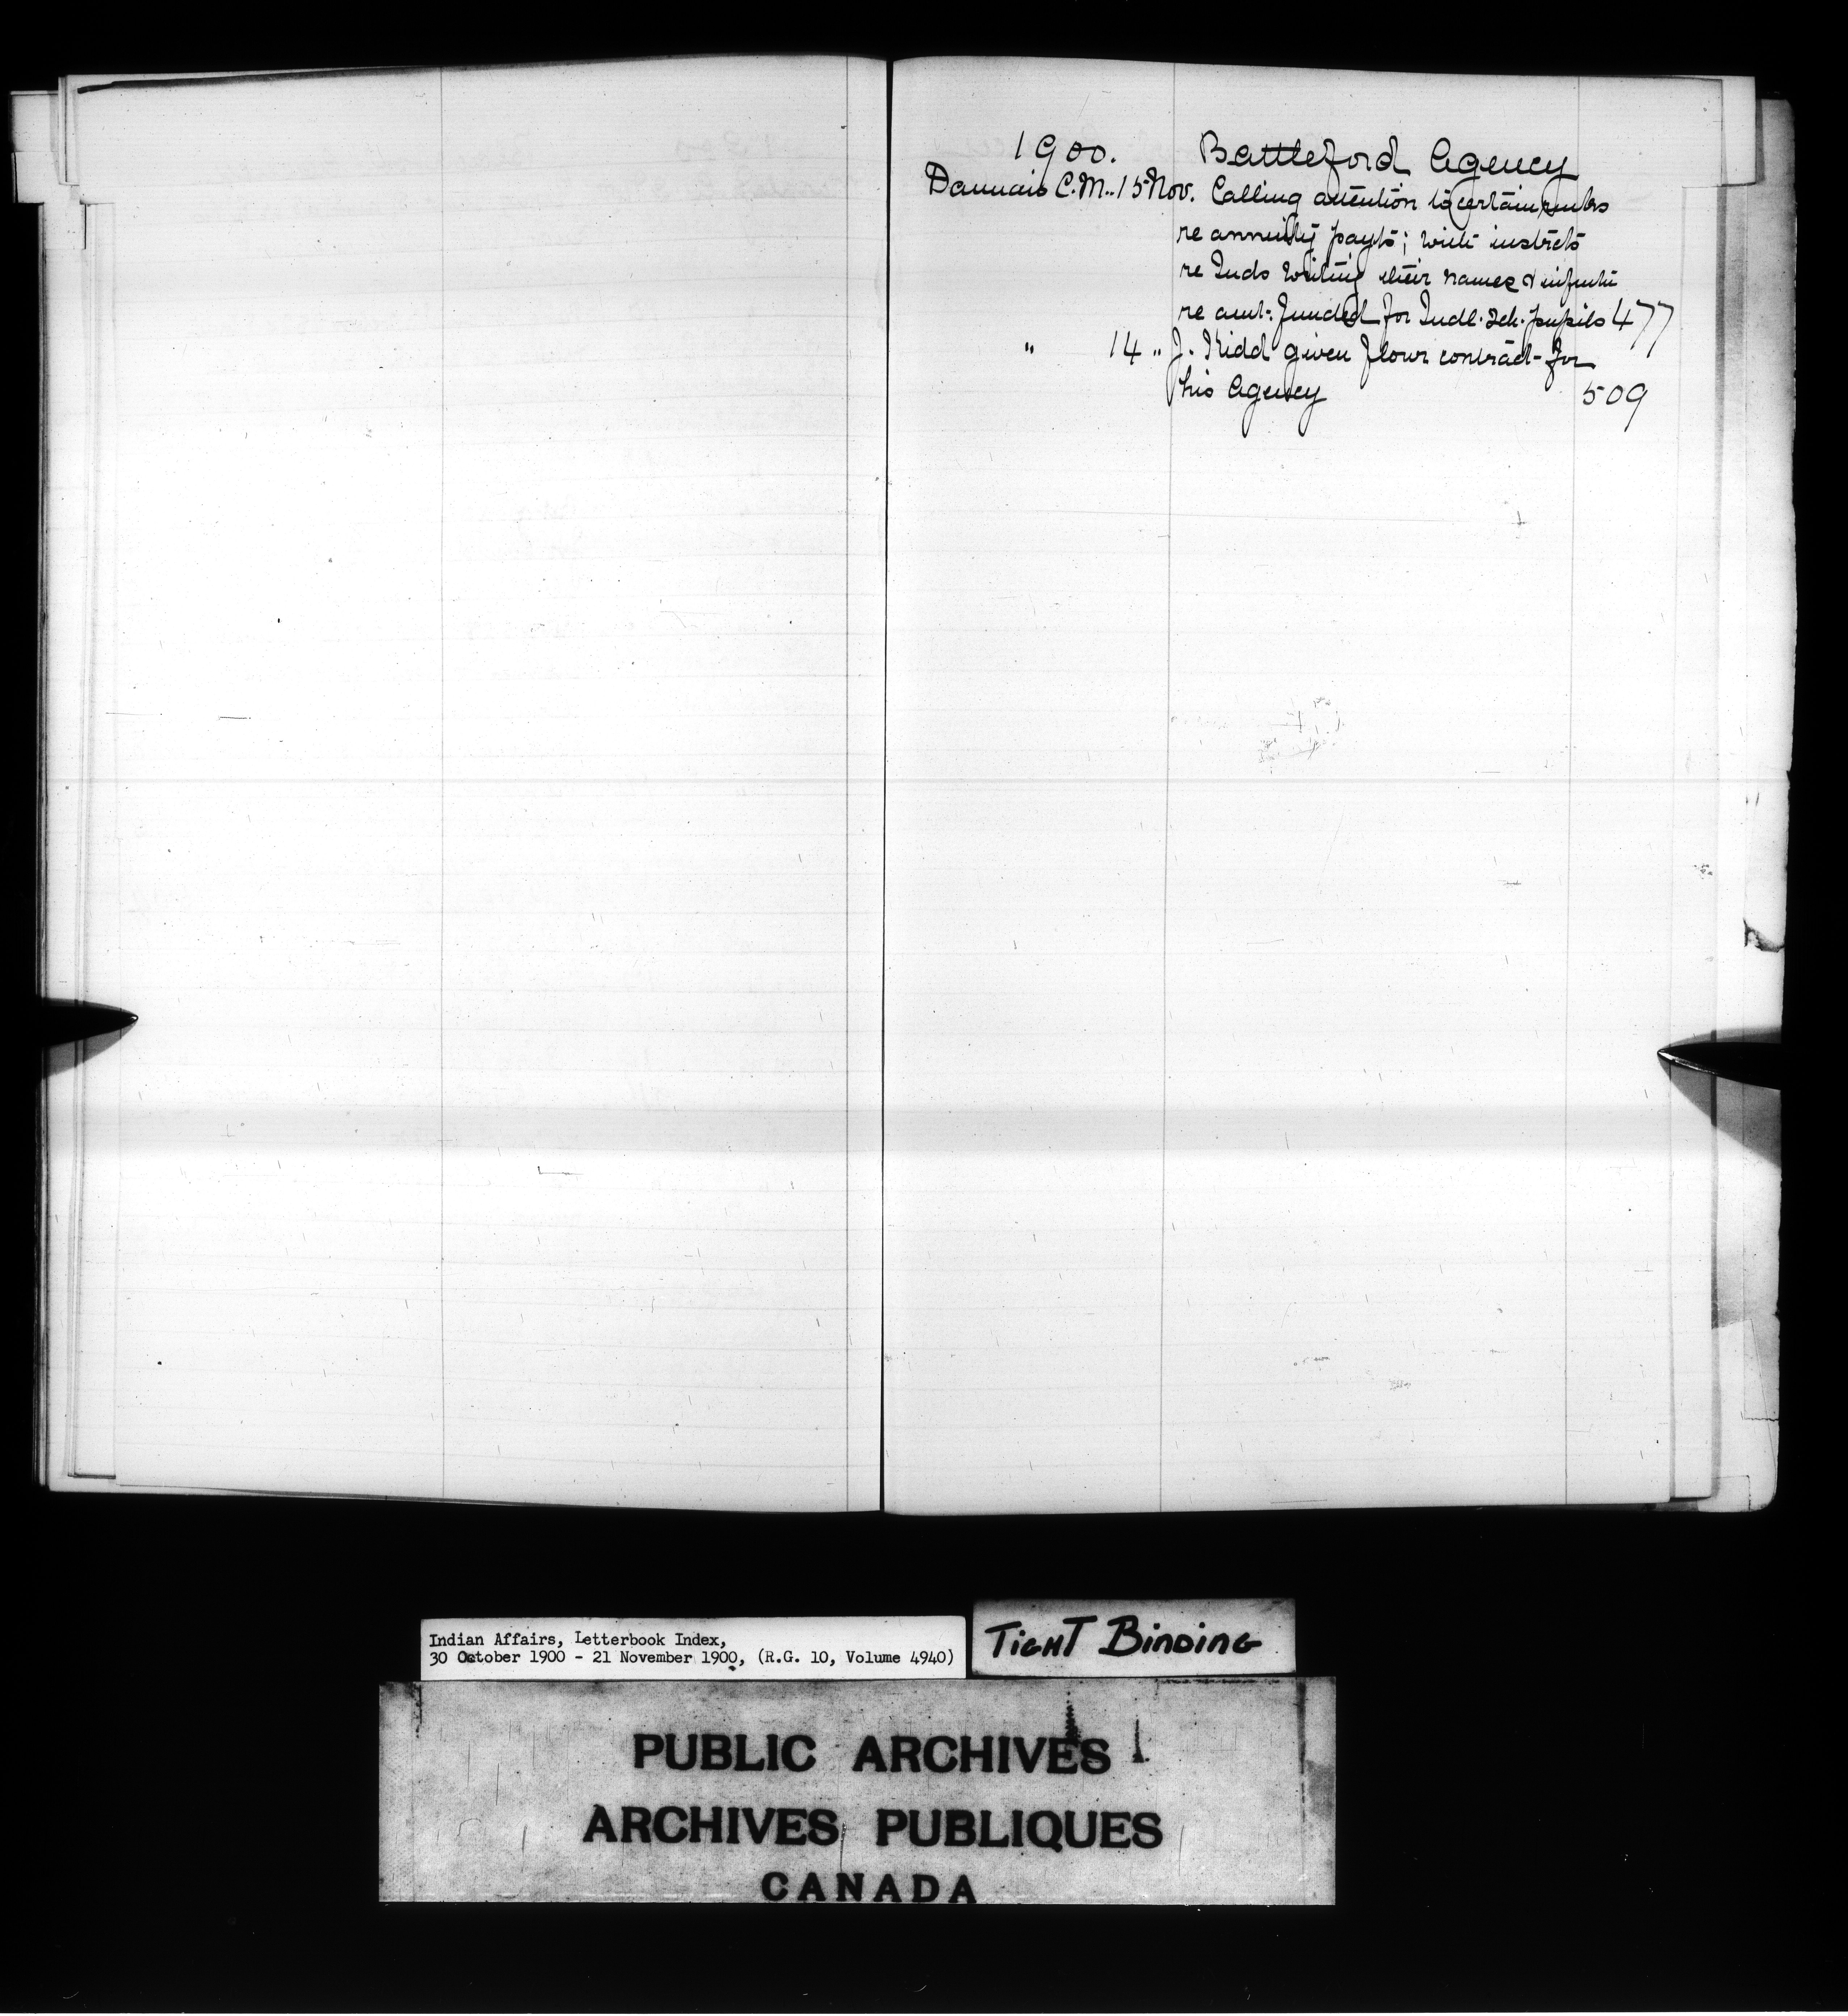 1900. Battleford Agency
Daunais C.M. 15 Nov. Calling attention to certain rules
re annuity payts; with instrcts
re Inds writing their names & infmtn
re amt. funded for Indl. Sch. pupils 477
" 14 " J. Kidd given flour contract for
his Agency 509
Indian Affairs, Letterbook Index,
30 October 1900 - 21 November 1900, (R.G. 10, Volume 4940)
TIGHT BINDING
PUBLIC ARCHIVES
ARCHIVES PUBLIQUES
CANADA